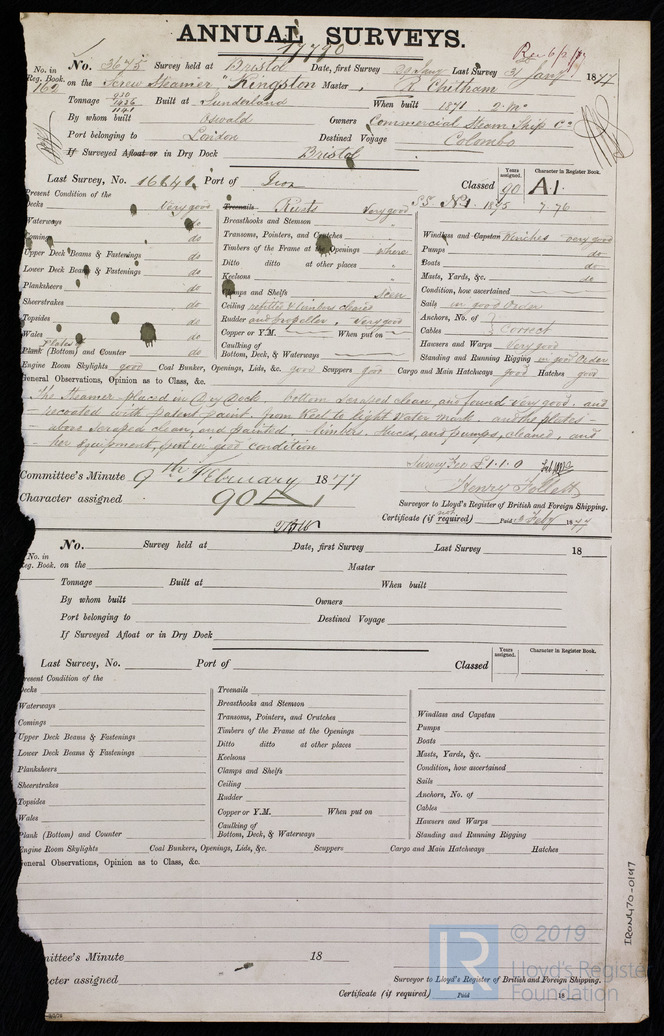 ANNUAL SURVEYS.
17790
No. in Reg. Book. 162 No. 3675 Survey held at Bristol Date, first Survey 29 Jany Last Survey 31 Jany 1877
on the Screw Steamer "Kingston" Master R. Chitham
Tonnage Built at Sunderland When built 1871 2 Mo
By whom built Oswald Owners Commercial Steam Ship Co
Port belonging to London Destined Voyage Colombo
If Surveyed Afloat or in Dry Dock Bristol
Last Survey, No. 16641 Port of Iron Classed Years assigned. 90 Character in Register Book. A1.
S.S. No 1 1875 7.76
Present Condition of the
Decks very good
Waterways do
Comings do
Upper Deck Beams & Fastenings do
Lower Deck Beams & Fastenings do
Planksheers do
Sheerstrakes do
Topsides do
Wales do
Plates
Plank (Bottom) and Counter do
Treenails Rivets very good
Breasthooks and Stemson "
Transoms, Pointers, and Crutches "
Timbers of the Frame at the Openings where
Ditto ditto at other places "
Keelsons "
Clamps and Shelfs seen
Ceiling refitted & limbers cleaned
Rudder and propeller, very good
Copper or Y.M. When put on
Caulking of
Bottom, Deck, & Waterways
Windlass and Capstan Winches very good
Pumps do
Boats do
Masts, Yards, &c. do
Condition, how ascertained
Sails in good Order
Anchors, No. of
Cables Correct
Hawsers and Warps Very good
Standing and Running Rigging in good Order
Engine Room Skylights good Coal Bunkers, Openings, Lids, &c. good Scuppers good Cargo and Main Hatchways good Hatches good
General Observations, Opinion as to Class, &c.
The Steamer placed in Dry Dock bottom scraped clean, and found very good. and
recoated with patent paint, from Keel to light Water mark. and the plates
above scraped clean, and painted limbers, sluices, and pumps, cleaned, and
her Equipment, put in good condition
Survey Fee £1.1.0
Committee's Minute 9th February 1877
Henry Follett
Character assigned 90 A1
Surveyor to Lloyd's Register of British and Foreign Shipping.
Certificate (if not required) Paid Feby 1877
No. in Reg. Book. No. Survey held at Date, first Survey Last Survey 18
on the Master
Tonnage Built at When built
By whom built Owners
Port belonging to Destined Voyage
If Surveyed Afloat or in Dry Dock
Last Survey, No. Port of Classed Years assigned. Character in Register Book.
resent Condition of the
ecks
Waterways
Comings
Upper Deck Beams & Fastenings
Lower Deck Beams & Fastenings
Planksheers
Sheerstrakes
Topsides
Wales
Plank (Bottom) and Counter
Treenails
Breasthooks and Stemson
Transoms, Pointers, and Crutches
Timbers of the Frame at the Openings
Ditto ditto at other places
Keelsons
Clamps and Shelfs
Ceiling
Rudder
Copper or Y.M. When put on
Caulking of
Bottom, Deck, & Waterways
Windlass and Capstan
Pumps
Boats
Masts, Yards, &c.
Condition, how ascertained
Sails
Anchors, No. of
Cables
Hawsers and Warps
Standing and Running Rigging
Engine Room Skylights Coal Bunkers, Openings, Lids, &c. Scuppers Cargo and Main Hatchways Hatches
eneral Observations, Opinion as to Class, &c.
IRON470-0197
mittee's Minute 18
cter assigned
Surveyor to Lloyd's Register of British and Foreign Shipping.
Certificate (if required) Paid 18
LR © 2019
Lloyd's Register
Foundation